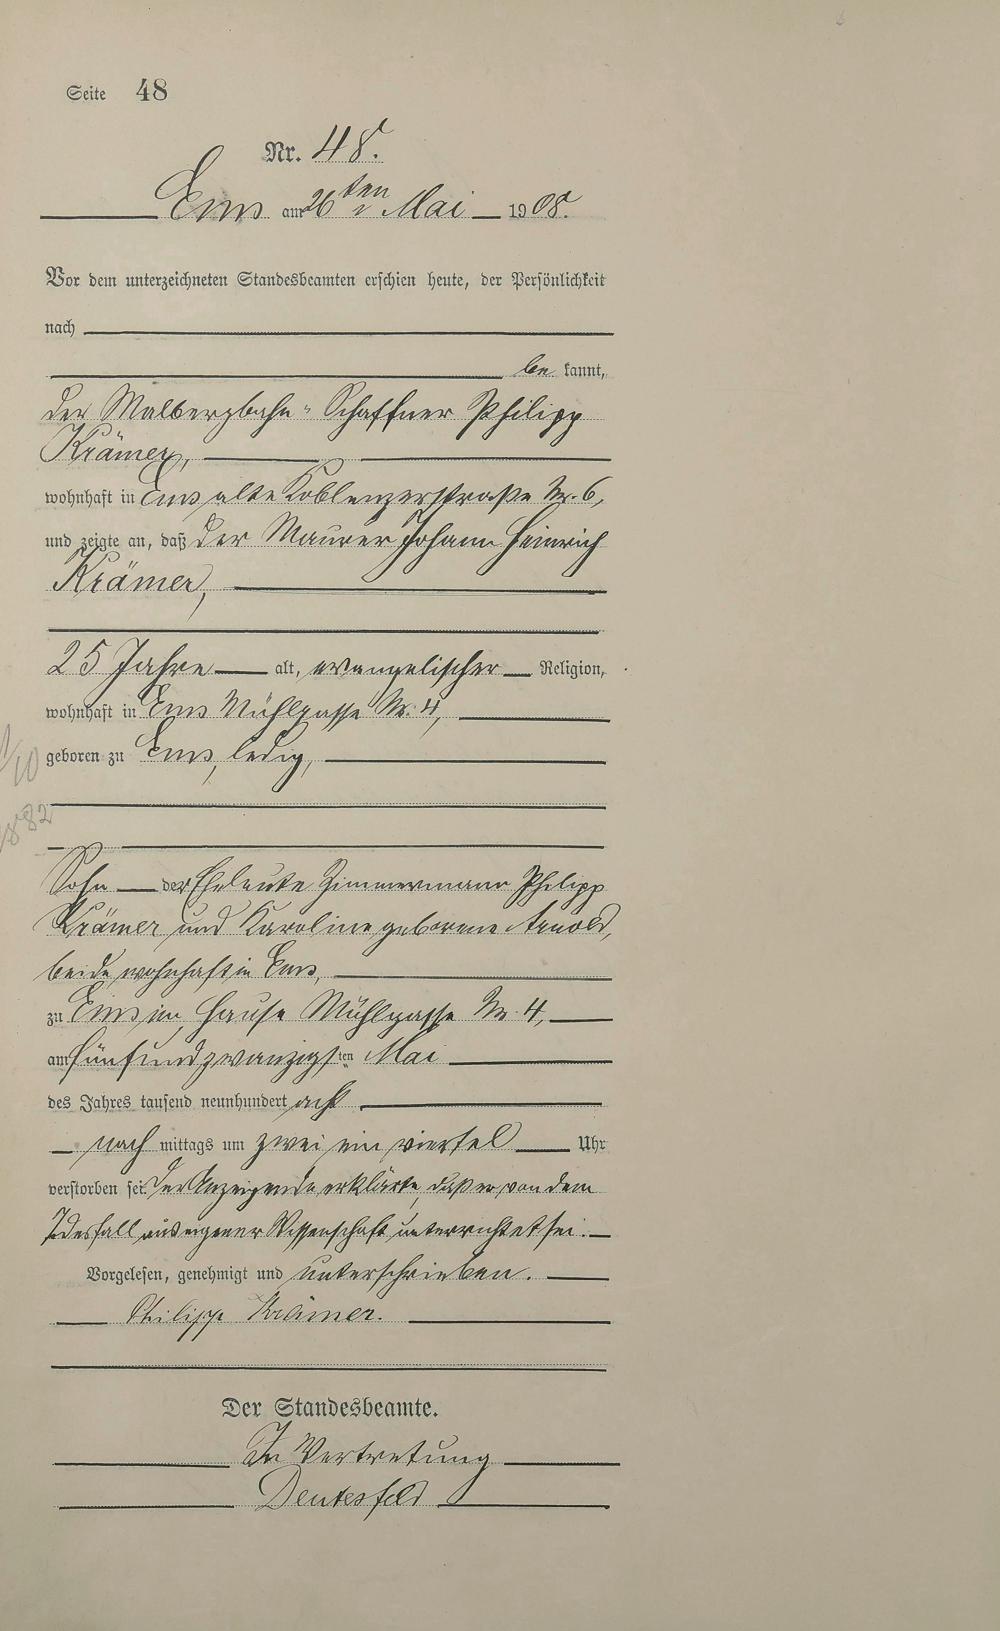 Seite 48
Nr. 48.
Ems am 26ten Mai 1908.
Vor dem unterzeichneten Standesbeamten erschien heute, der Persönlichkeit
nach
be kannt,
der Malbergbahn-Schaffner Philipp
Krämer,
wohnhaft in Ems alte Koblenzerstraße Nr. 6,
und zeigte an, daß der Maurer Johann Heinrich
Krämer,
25 Jahre alt, evangelischer Religion,
wohnhaft in Ems Mühlgasse Nr. 4,
geboren zu Ems, ledig,
1882
Sohn der Eheleute Zimmermann Philipp
Krämer und Karoline geborene Arnold,
beide wohnhaft in Ems,
zu Ems im Hause Mühlgasse Nr. 4,
am fünfundzwanzigsten Mai
des Jahres tausend neunhundert acht
nach mittags um zwei ein viertel Uhr
verstorben sei. Der Anzeigende erklärte, daß er von dem
Todesfall aus eigener Wissenschaft unterrichtet sei.
Vorgelesen, genehmigt und unterschrieben.
Philipp Krämer.
Der Standesbeamte.
In Vertretung
Deutesfeld